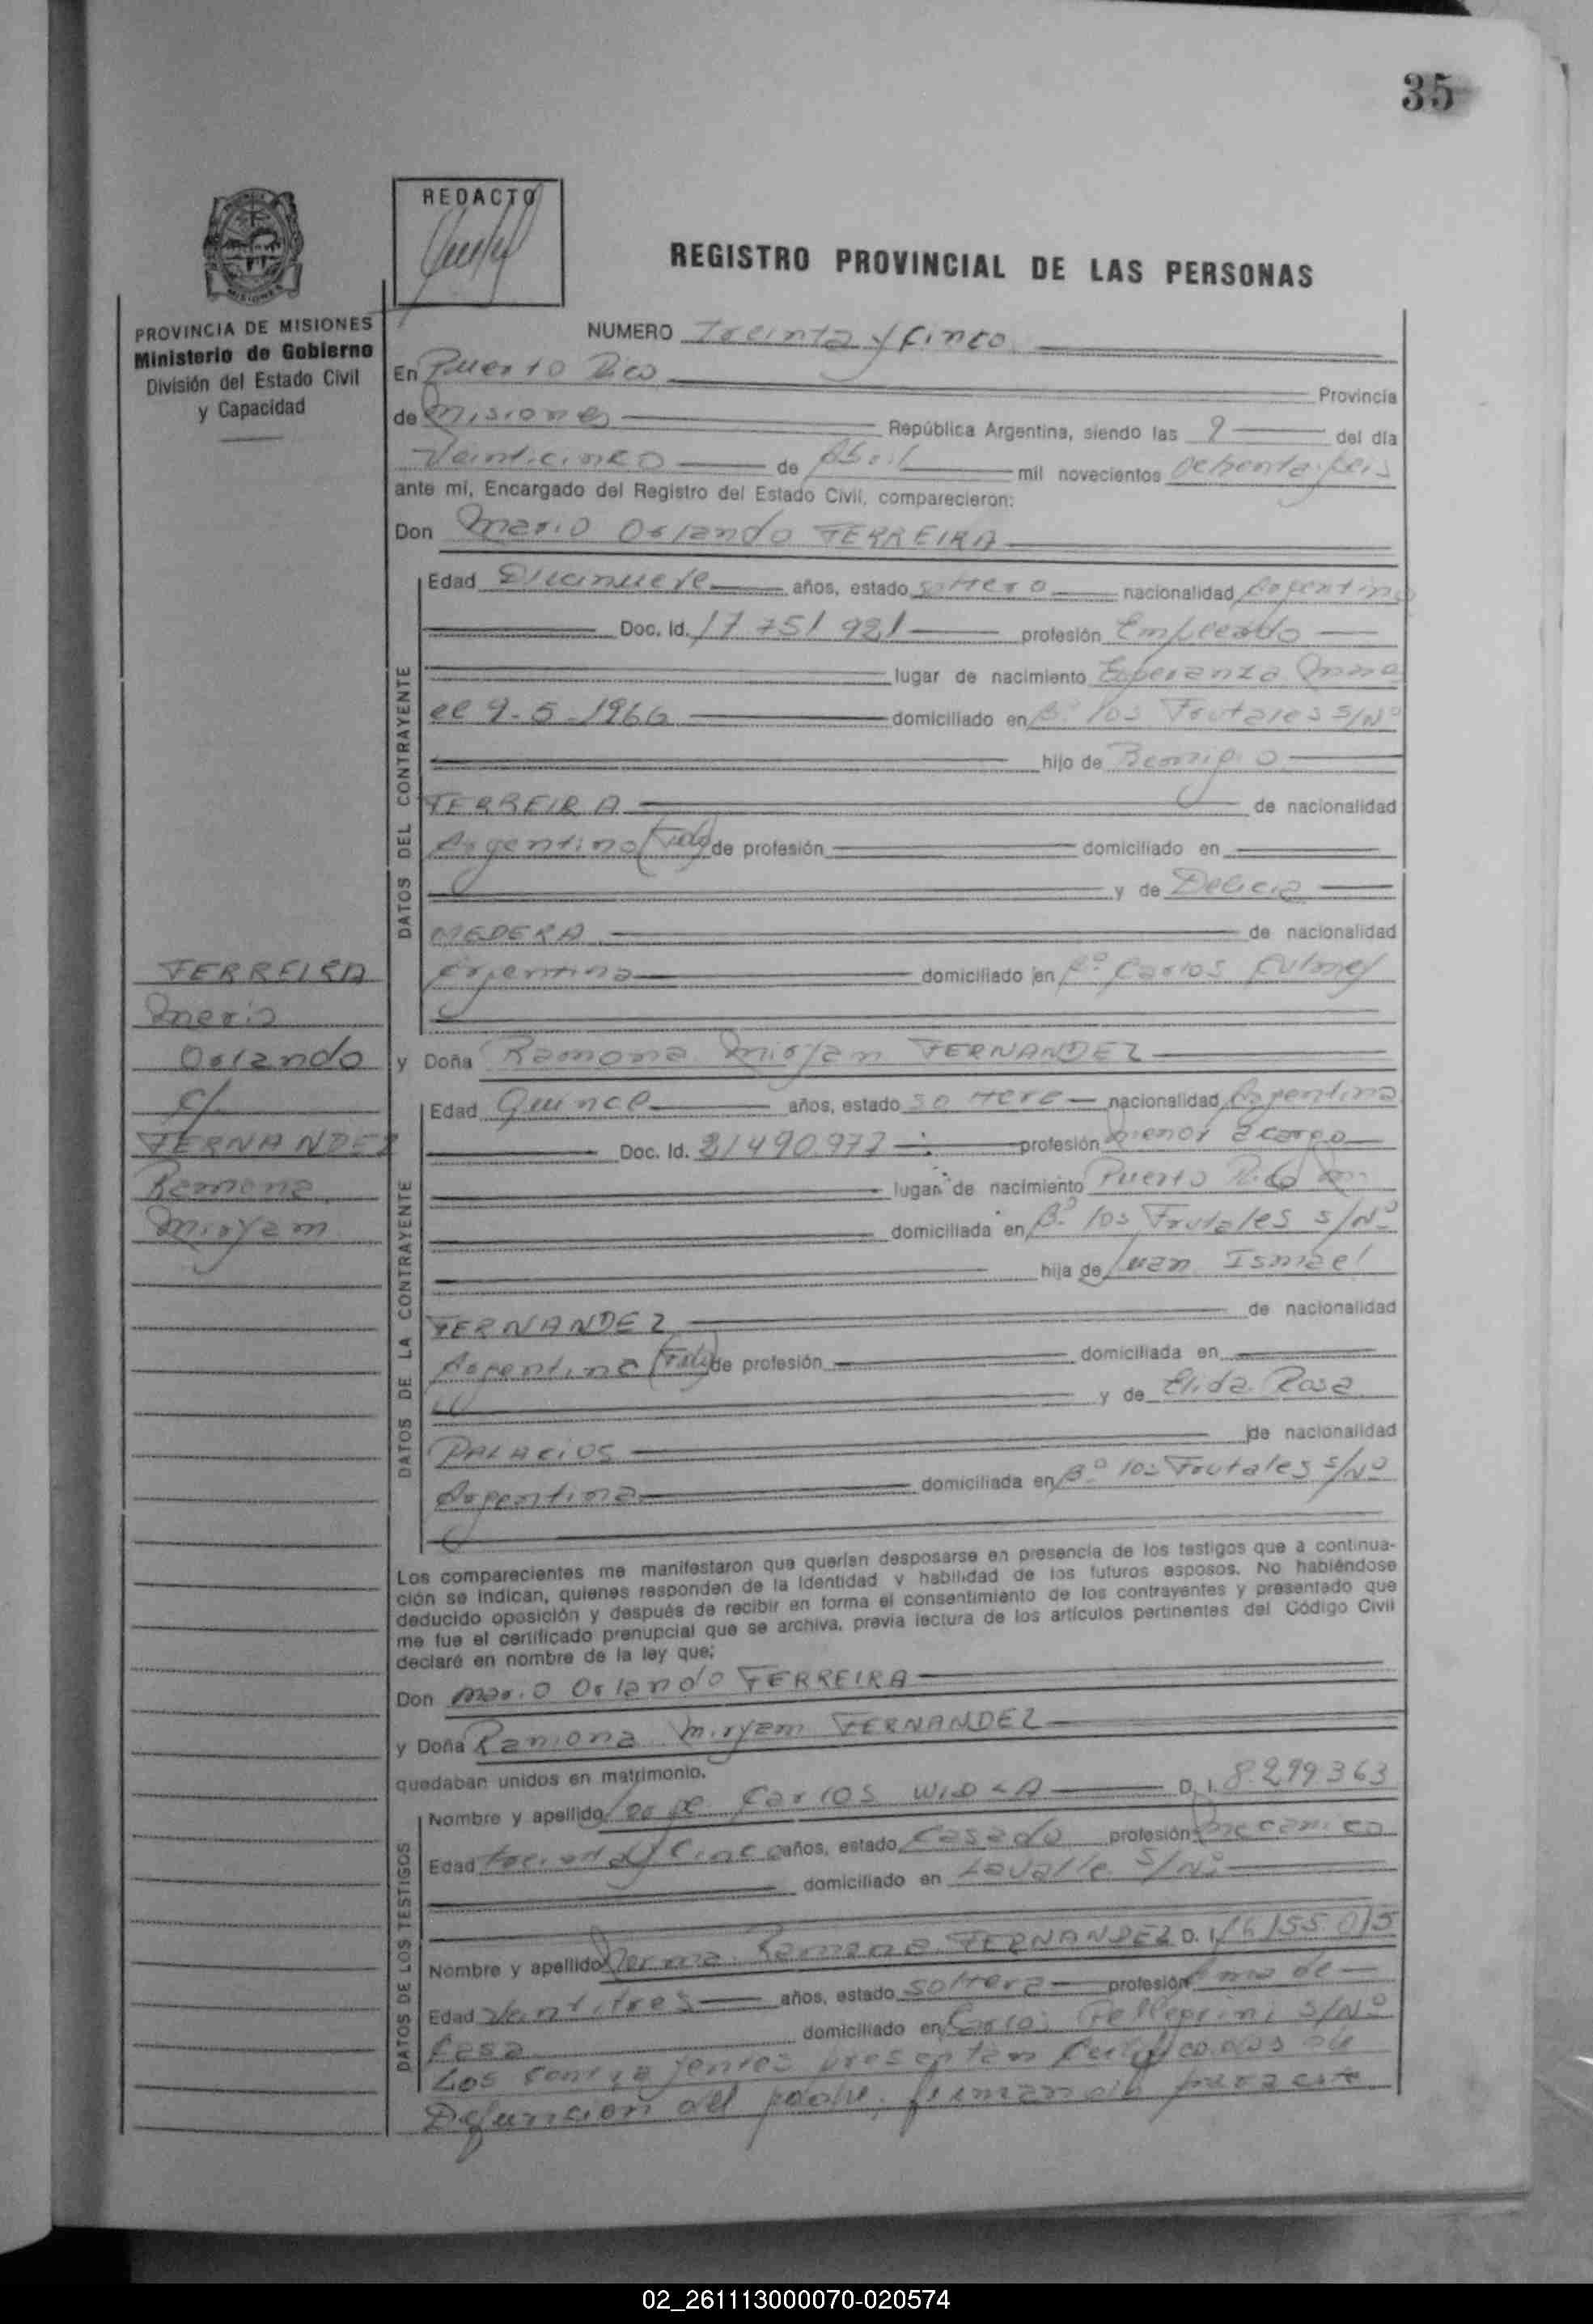 35
REDACTO
REGISTRO PROVINCIAL DE LAS PERSONAS
PROVINCIA DE MISIONES
Ministerio de Gobierno
División del Estado Civil
y Capacidad
NUMERO Treinta y Cinco
En Puerto Rico Provincia
de Misiones República Argentina, siendo las 9 del día
Veinticinco de Abril mil novecientos Ochenta y seis
ante mí, Encargado del Registro del Estado Civil, comparecieron:
Don Mario Orlando FERREIRA
DATOS DEL CONTRAYENTE
Edad Diecinueve años, estado soltero nacionalidad Argentina
Doc. Id. 17 751 921 profesión Empleado
lugar de nacimiento Esperanza
el 9-5-1966 domiciliado en Bº los Frutales S/Nº
hijo de Bemigio
FERREIRA de nacionalidad
Argentino de profesión domiciliado en
y de Delicia
MEDERA de nacionalidad
Argentina domiciliado en Bº Carlos Culmey
FERREIRA
Mario
Orlando
c/
FERNANDEZ
Ramona
Miryam
y Doña Ramona Miryam FERNANDEZ
DATOS DE LA CONTRAYENTE
Edad Quince años, estado soltera nacionalidad Argentina
Doc. Id. 21490.977 profesión menor a cargo
lugar de nacimiento Puerto Rico
domiciliada en Bº los Frutales S/Nº
hija de Juan Ismael
FERNANDEZ de nacionalidad
Argentino de profesión domiciliada en
y de Elida Rosa
PALACIOS de nacionalidad
Argentina domiciliada en Bº los Frutales S/Nº
Los comparecientes me manifestaron que querían desposarse en presencia de los testigos que a continua-
ción se indican, quienes responden de la identidad y habilidad de los futuros esposos. No habiéndose
deducido oposición y después de recibir en forma el consentimiento de los contrayentes y presentado que
me fue el certificado prenupcial que se archiva, previa lectura de los artículos pertinentes del Código Civil
declaré en nombre de la ley que:
Don Mario Orlando FERREIRA
y Doña Ramona Miryam FERNANDEZ
quedaban unidos en matrimonio.
DATOS DE LOS TESTIGOS
Nombre y apellido Jorge Carlos D. I. 8.299.363
Edad treinta y Cinco años, estado Casado profesión Mecanico
domiciliado en Lavalle S/Nº
Nombre y apellido Ramona FERNANDEZ D. I. 16155.015
Edad Veintitres años, estado soltera profesión Ama de
Casa domiciliado en Carlos Pellegrini S/Nº
Los contrayentes presentan Certificados de
Defunción del padre, firmando para este
02_261113000070-020574